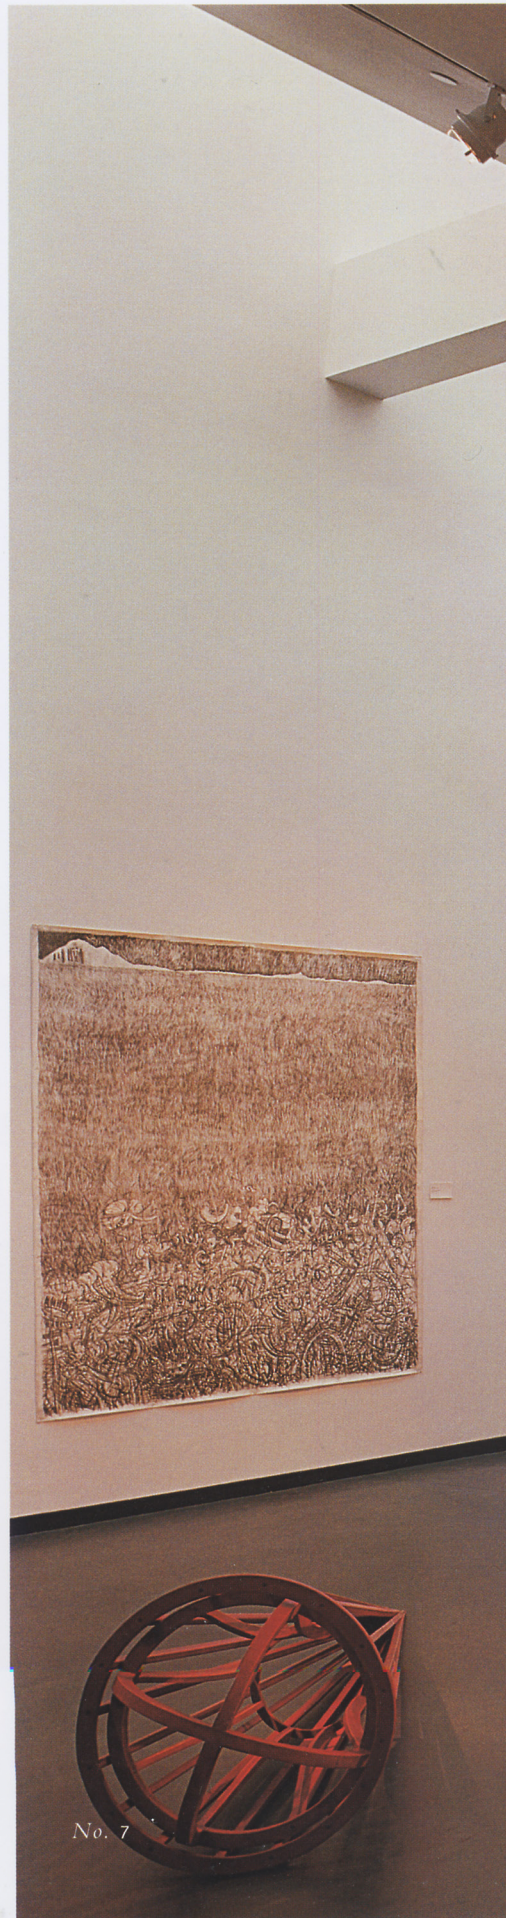 No. 7